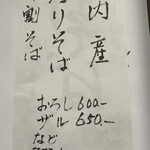 内産
りそば
割そば
おろし 600.-
ザル 650.-
など